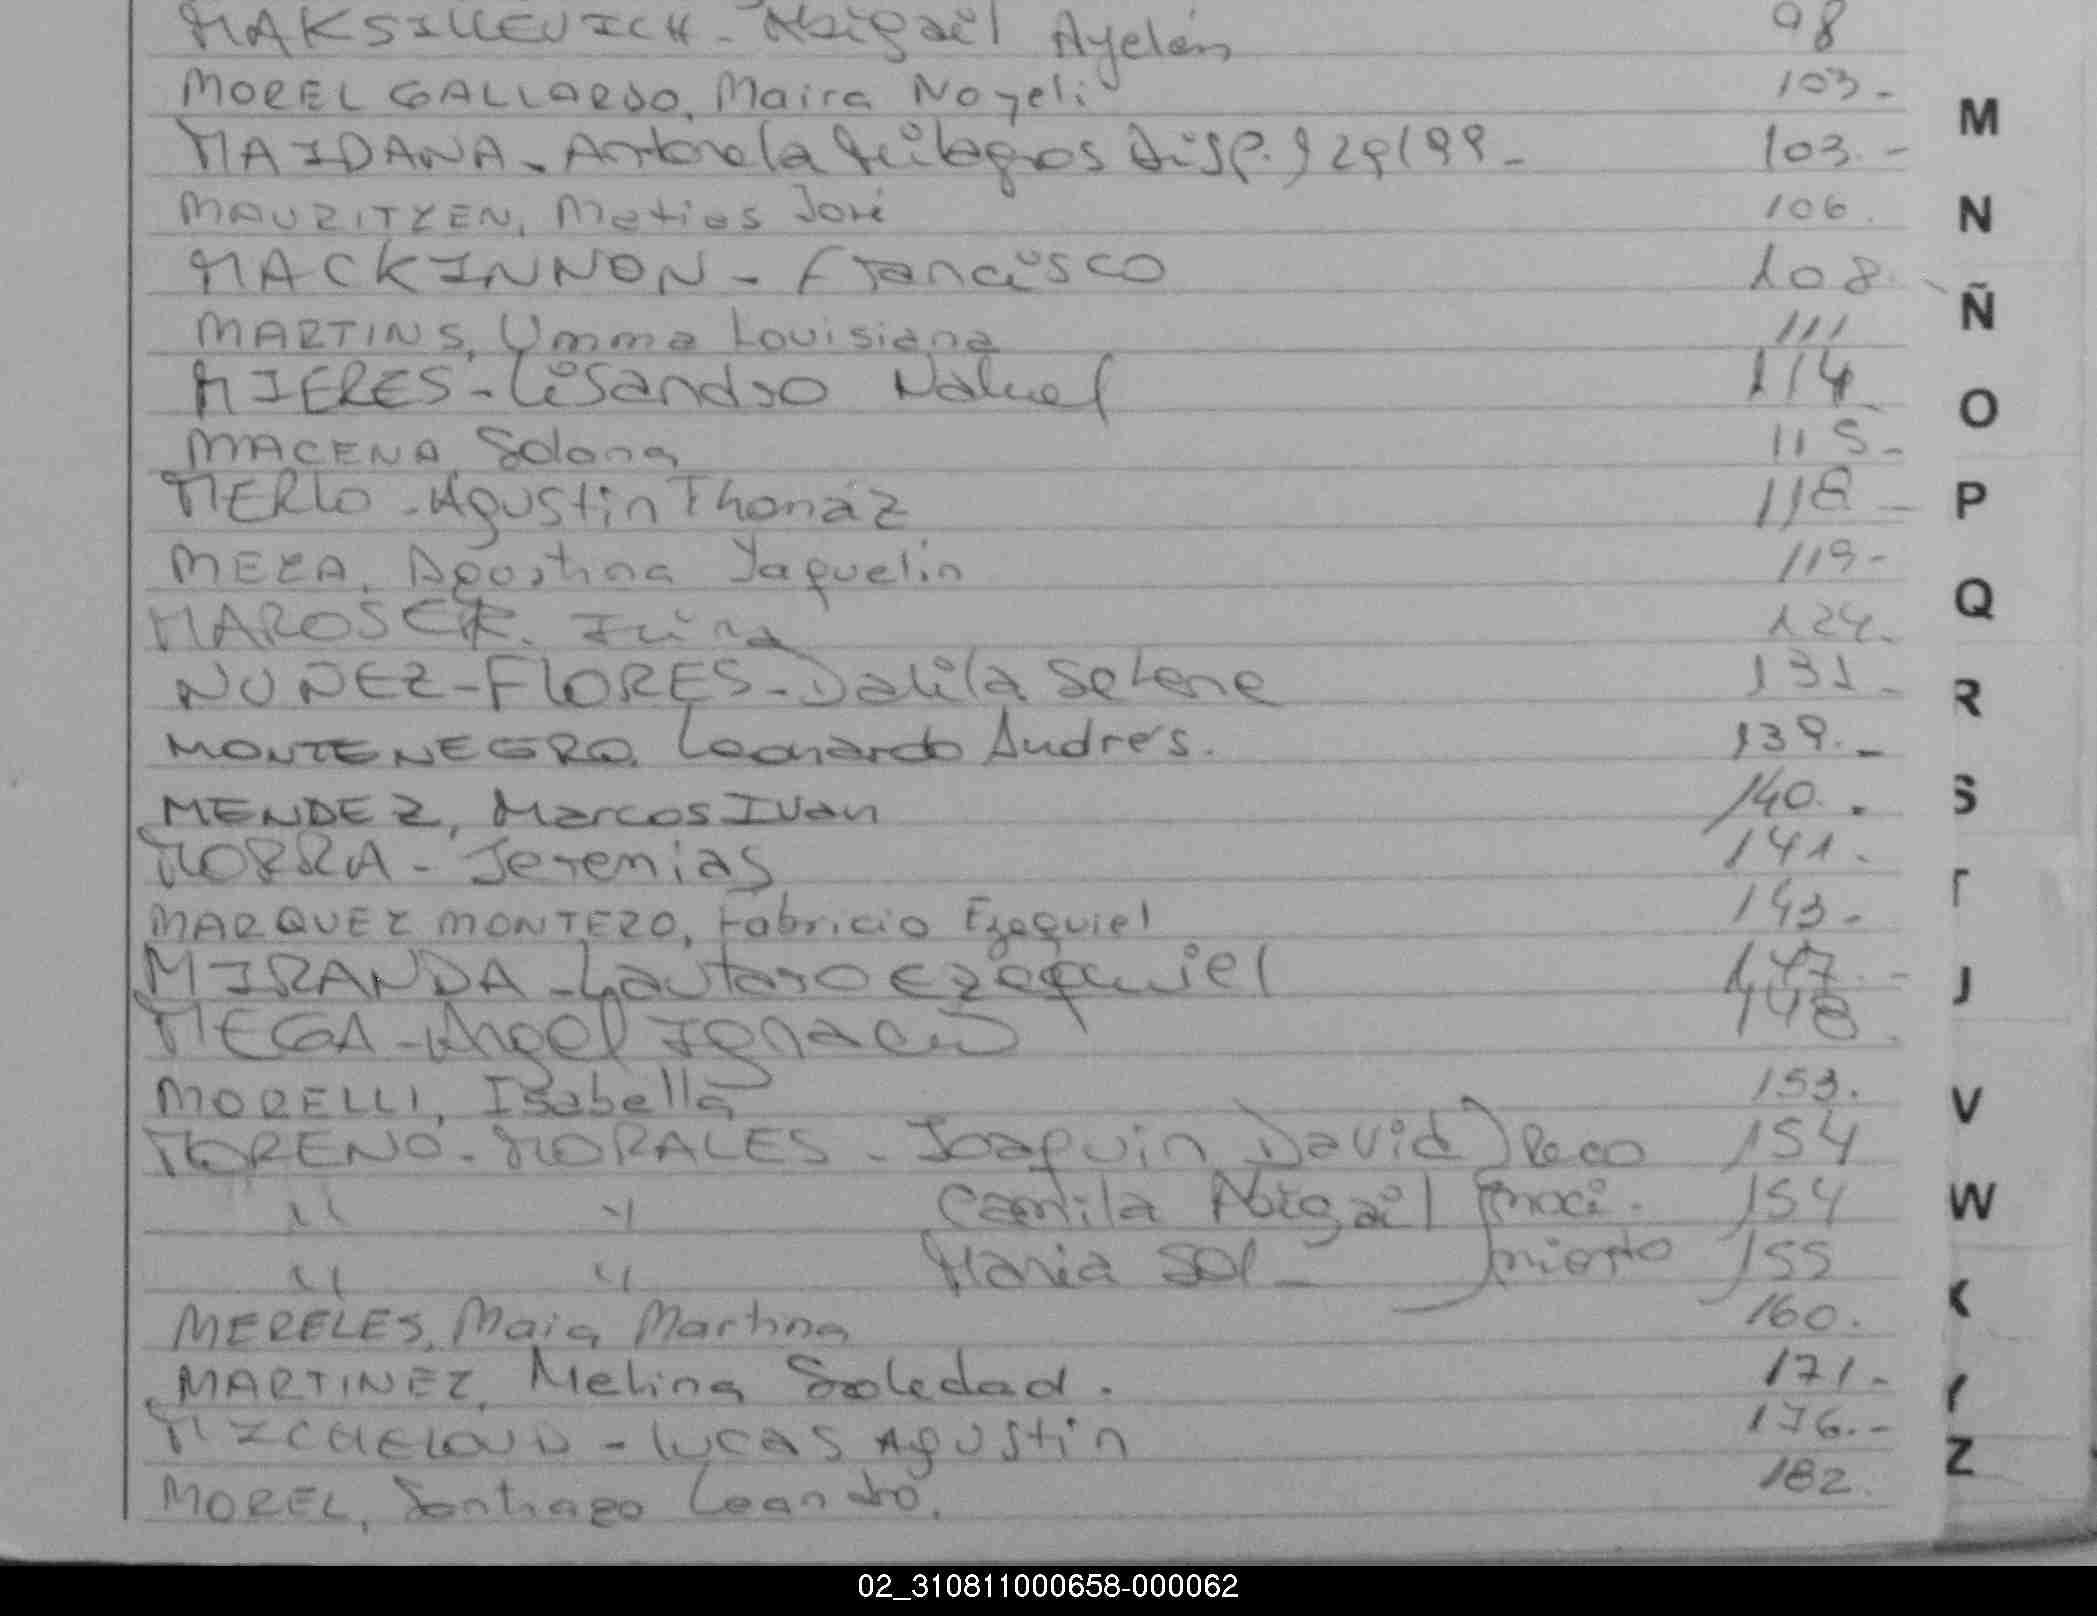 MAKSILLEVICH - Abigaíl Ayelén 98
MOREL GALLARDO, Maira Noyeli 103.-
MAIDANA - Antonela Milagros Disp. 929/99 - 103.-
MAURITZEN, Matias José 106.
MACKINNON - Francisco 108.
MARTINS, Umma Louisiana 111
MIERES - Lisandro Nahuel 114
MACENA, Solana 115-
MERLO - Agustin Thomáz 118-
MEZA, Agostina Yaquelin 119-
124.
NUÑEZ-FLORES - Dalila Selene 131-
MONTENEGRO, Leonardo Andrés. 139.-
MENDEZ, Marcos Ivan 140.-
MORRA - Jeremias 141.
MARQUEZ MONTERO, Fabricio Ezequiel 143.-
MIRANDA - Lautaro Ezequiel 147.-
MEGA - Angel Ignacio 148.
MORELLI, Isabella 153.
MORENO - MORALES - Joaquin David Reco 154
" " Camila Abigaíl noci- 154
" " Maria Sol - miento 155
MERELES, Maia Martina 160.
MARTINEZ, Melina Soledad. 171.-
Lucas Agustin 176.-
MOREL, Santiago Leandro. 182.
M
N
Ñ
O
P
Q
R
S
T
J
V
W
K
Y
Z
02_310811000658-000062